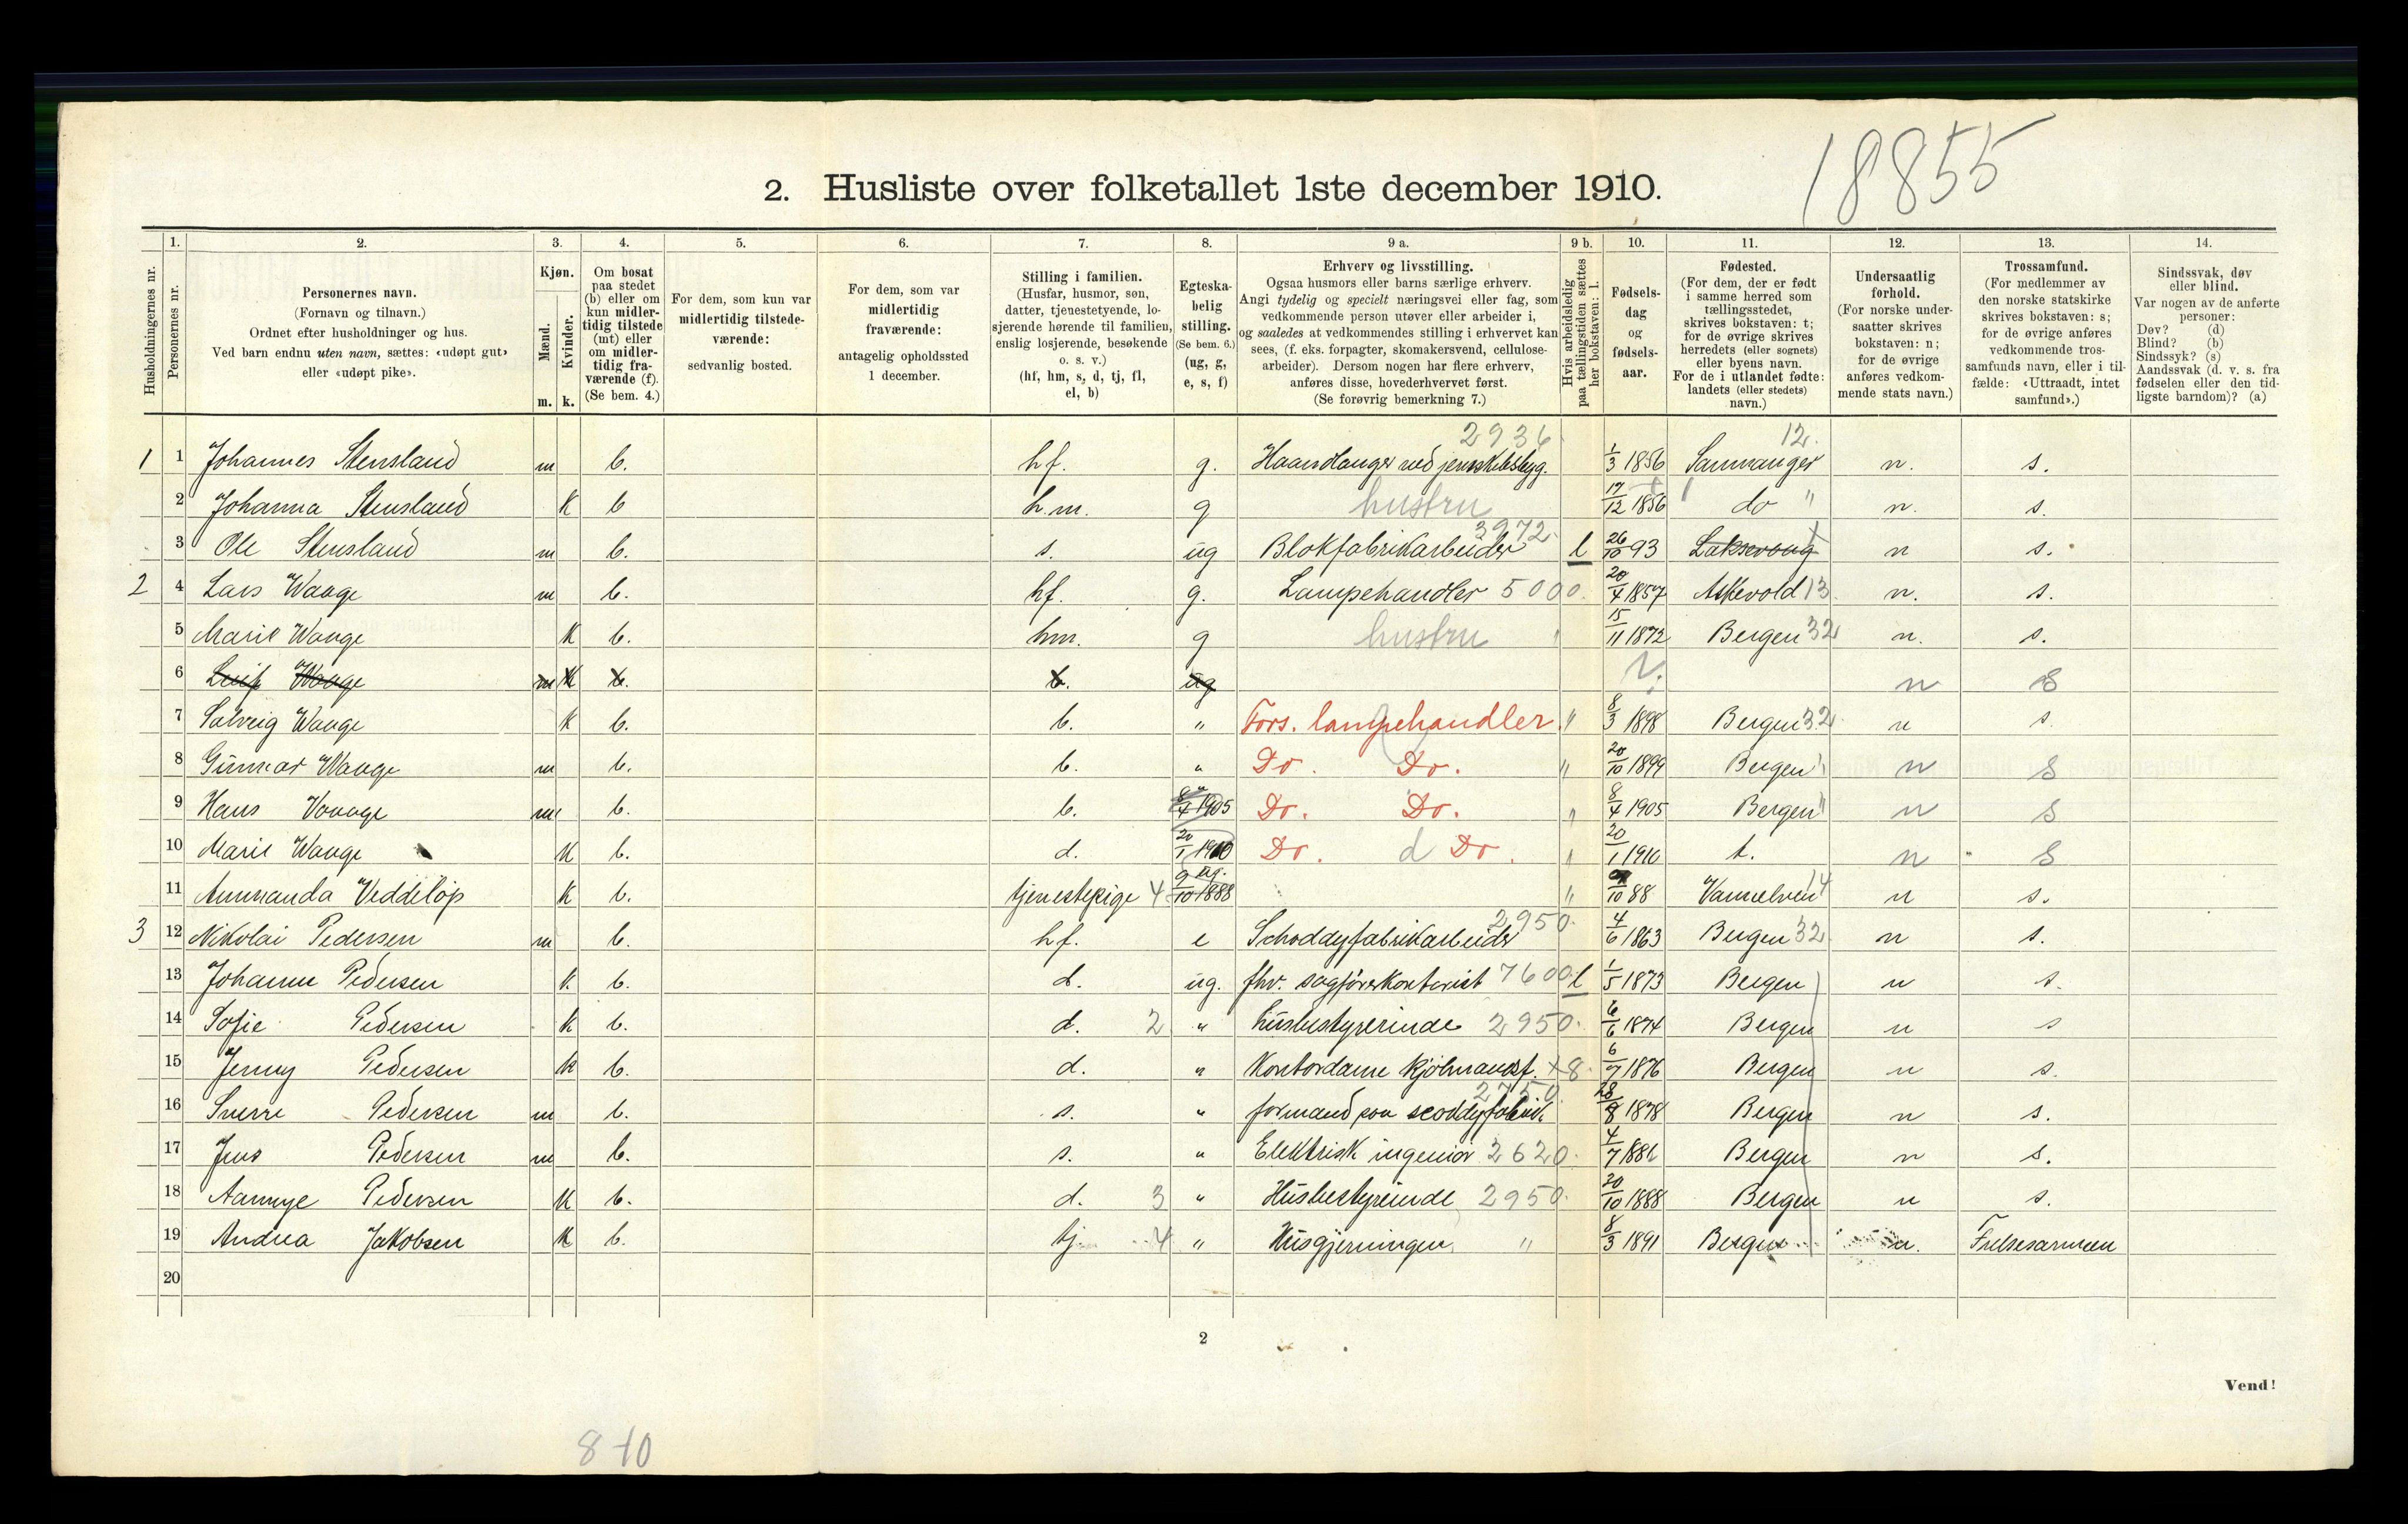 18855
2. Husliste over folketallet 1ste december 1910.
Husholdningernes nr.
1. Personernes nr.
2. Personernes navn.
(Fornavn og tilnavn.)
Ordnet efter husholdninger og hus.
Ved barn endnu uten navn, sættes: «udøpt gut»
eller «udøpt pike».
3. Kjøn.
Mænd. m.
Kvinder. k.
4. Om bosat
paa stedet
(b) eller om
kun midler-
tidig tilstede
(mt) eller
om midler-
tidig fra-
værende (f).
(Se bem. 4.)
5. For dem, som kun var
midlertidig tilstede-
værende:
sedvanlig bosted.
6. For dem, som var
midlertidig
fraværende:
antagelig opholdssted
1 december.
7. Stilling i familien.
(Husfar, husmor, søn,
datter, tjenestetyende, lo-
sjerende hørende til familien,
enslig losjerende, besøkende
o. s. v.)
(hf, hm, s, d, tj, fl,
el, b)
8. Egteska-
belig
stilling.
(Se bem. 6.)
(ug, g,
e, s, f)
9 a. Erhverv og livsstilling.
Ogsaa husmors eller barns særlige erhverv.
Angi tydelig og specielt næringsvei eller fag, som
vedkommende person utøver eller arbeider i,
og saaledes at vedkommendes stilling i erhvervet kan
sees, (f. eks. forpagter, skomakersvend, cellulose-
arbeider). Dersom nogen har flere erhverv,
anføres disse, hovederhvervet først.
(Se forøvrig bemerkning 7.)
9 b. Hvis arbeidsledig
paa tællingstiden sættes
her bokstaven: l.
10. Fødsels-
dag
og
fødsels-
aar.
11. Fødested.
(For dem, der er født
i samme herred som
tællingsstedet,
skrives bokstaven: t;
for de øvrige skrives
herredets (eller sognets)
eller byens navn.
For de i utlandet fødte:
landets (eller stedets)
navn.)
12. Undersaatlig
forhold.
(For norske under-
saatter skrives
bokstaven: n;
for de øvrige
anføres vedkom-
mende stats navn.)
13. Trossamfund.
(For medlemmer av
den norske statskirke
skrives bokstaven: s;
for de øvrige anføres
vedkommende tros-
samfunds navn, eller i til-
fælde: «Uttraadt, intet
samfund».)
14. Sindssvak, døv
eller blind.
Var nogen av de anførte
personer:
Døv? (d)
Blind? (b)
Sindssyk? (s)
Aandssvak (d. v. s. fra
fødselen eller den tid-
ligste barndom)? (a)
2936 12.
1 1 Johannes Stensland m b. hf. g. Haandlanger ved 1/3 1856 Samnanger n. s.
2 Johanna Stensland k b h.m. g hustru 17/12 1856 do " n. s.
3972.
3 Ole Stensland m b. s. ug Blokfabrikarbeider l 26/10 93 Laksevaag n s.
2 4 Lars Waage m b. hf. g. Lampehandler 5000. 20/4 1857 Askevold 13 n. s.
5 Marie Waage k b. hm. g hustru 15/11 1872 Bergen 32 n. s.
6 Leif Waage m k b. b. ug n S
7 Solveig Waage k b. b. " Fors. lampehandler " 8/3 1898 Bergen 32 n s.
8 Gunnar Waage m b. b. " Do. Do. " 20/10 1899 Bergen " n S
9 Hans Vaage m b. b. 8/4 1905 Do. Do. " 8/4 1905 Bergen " n S
10 Marie Waage k b. d. 20/1 1910 Do. d Do. " 20/1 1910 t. n S
11 Ammanda Veddeløp k b. tjenestepige 4 ug. 9/10 1888 " 9/10 88 Vannelven 14 n s.
2950.
3 12 Nikolai Pedersen m b. hf. e Schoddyfabrikarbeider 4/6 1863 Bergen 32 n s.
13 Johanne Pedersen k b. d. ug. fhv. sagførerkontorist 7600. l 1/5 1873 Bergen n s.
14 Sofie Pedersen k b. d. 2 " Husbestyrerinde 2950. 6/6 1874 Bergen n s
15 Jenny Pedersen k b. d. " Kontordame kjølmandsf. +8. 6/7 1876 Bergen n s.
2750.
16 Sverre Pedersen m b. s. " formand paa scoddyfabrik. 28/8 1878 Bergen n s.
17 Jens Pedersen m b. s. " Elektrisk ingeniør 2620. 4/7 1881 Bergen n s.
18 Aannye Pedersen k b. d. 3 " Husbestyreinde 2950. 20/10 1888 Bergen n s.
19 Andrea Jakobsen k b. tj 4 " Husgjerningen " 8/3 1891 Bergen n. Frelsesarmeen
20
2
Vend!
8-10